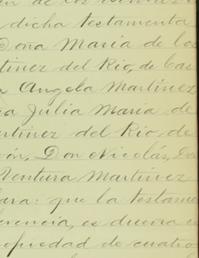 en de los bienes
dicha testamenta
Doña María de los
tínez del Rio, de Cas
a Angela Martínez
ña Julia María de
artínez del Rio, de
ón, Don Nicolás, Do
Ventura Martínez
lara: que la testame
erencia, es dueña e
opiedad de cuatro